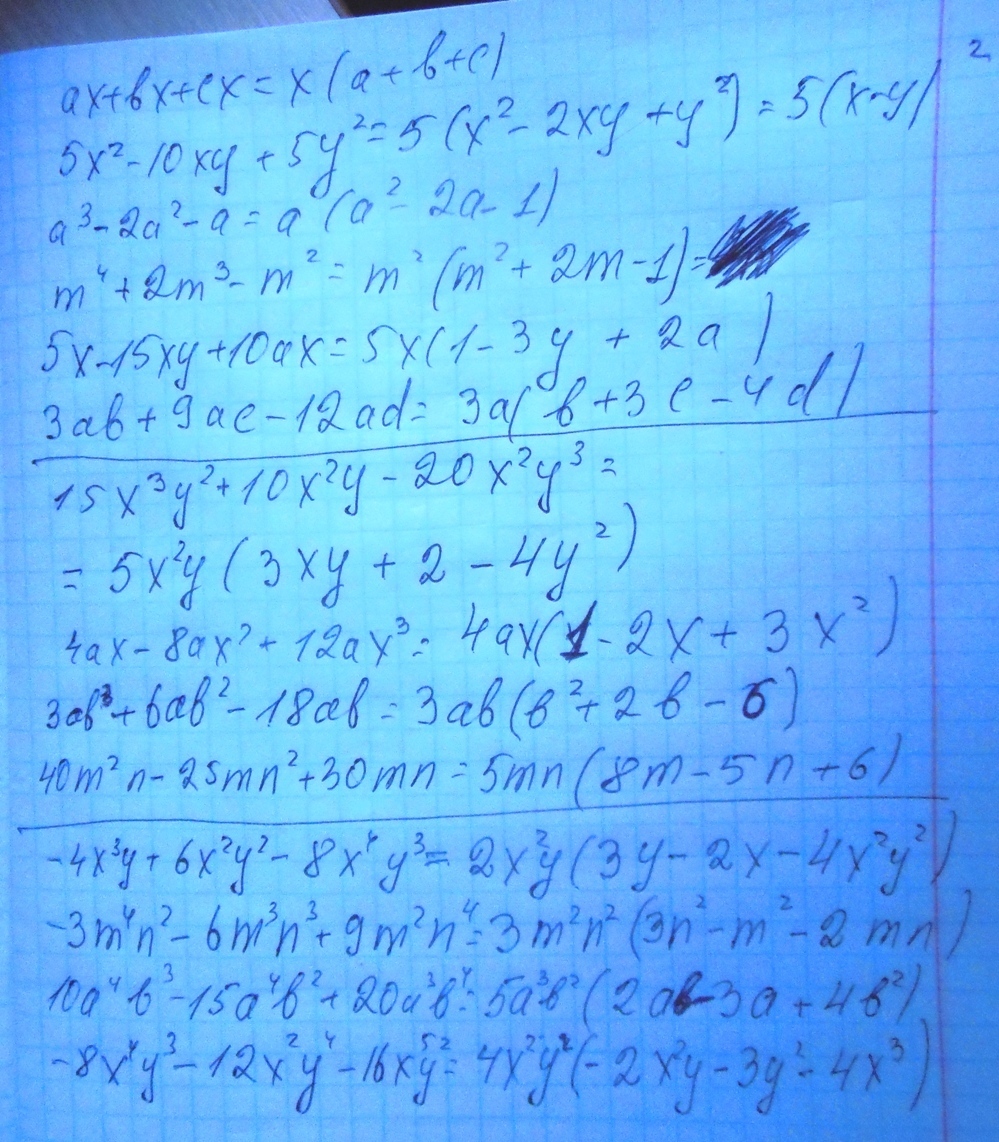 ax+bx+cx=x(a+b+c)
5x²-10xy+5y²=5(x²-2xy+y²)=5(x-y)²
a³-2a²-a=a(a²-2a-1)
m⁴+2m³-m²=m²(m²+2m-1)=
5x-15xy+10ax=5x(1-3y+2a)
3ab+9ac-12ad=3a(b+3c-4d)
15x³y²+10x²y-20x²y³=
=5x²y(3xy+2-4y²)
4ax-8ax²+12ax³=4ax(1-2x+3x²)
3ab³+6ab²-18ab=3ab(b²+2b-6)
40m²n-25mn²+30mn=5mn(8m-5n+6)
-4x³y+6x²y²-8x⁴y³=2x²y(3y-2x-4x²y²)
-3m⁴n²-6m³n³+9m²n⁴=3m²n²(3n²-m²-2mn)
10a⁴b³-15a⁴b²+20a³b⁴=5a³b²(2ab-3a+4b²)
-8x⁴y³-12x²y⁴-16x⁵y²=4x²y²(-2x²y-3y²-4x³)